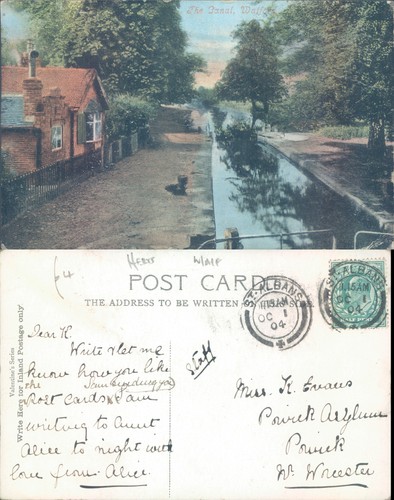 The Canal, Watford
64
Herts
W/A1F
POST CARD
THE ADDRESS TO BE WRITTEN ON THIS SIDE.
ST. ALBANS
11.15AM
OC 1
04
ST. ALBANS
11.15AM
OC 1
04
Valentine's Series
Write Here for Inland Postage only
Dear K.
Write & let me
know how you like
the Post Cards I am sending you
writing to Aunt
Alice to night with
love from Alice.
Staff
Miss. K. Evans
Powick Asylum
Powick
Nr. Worcester